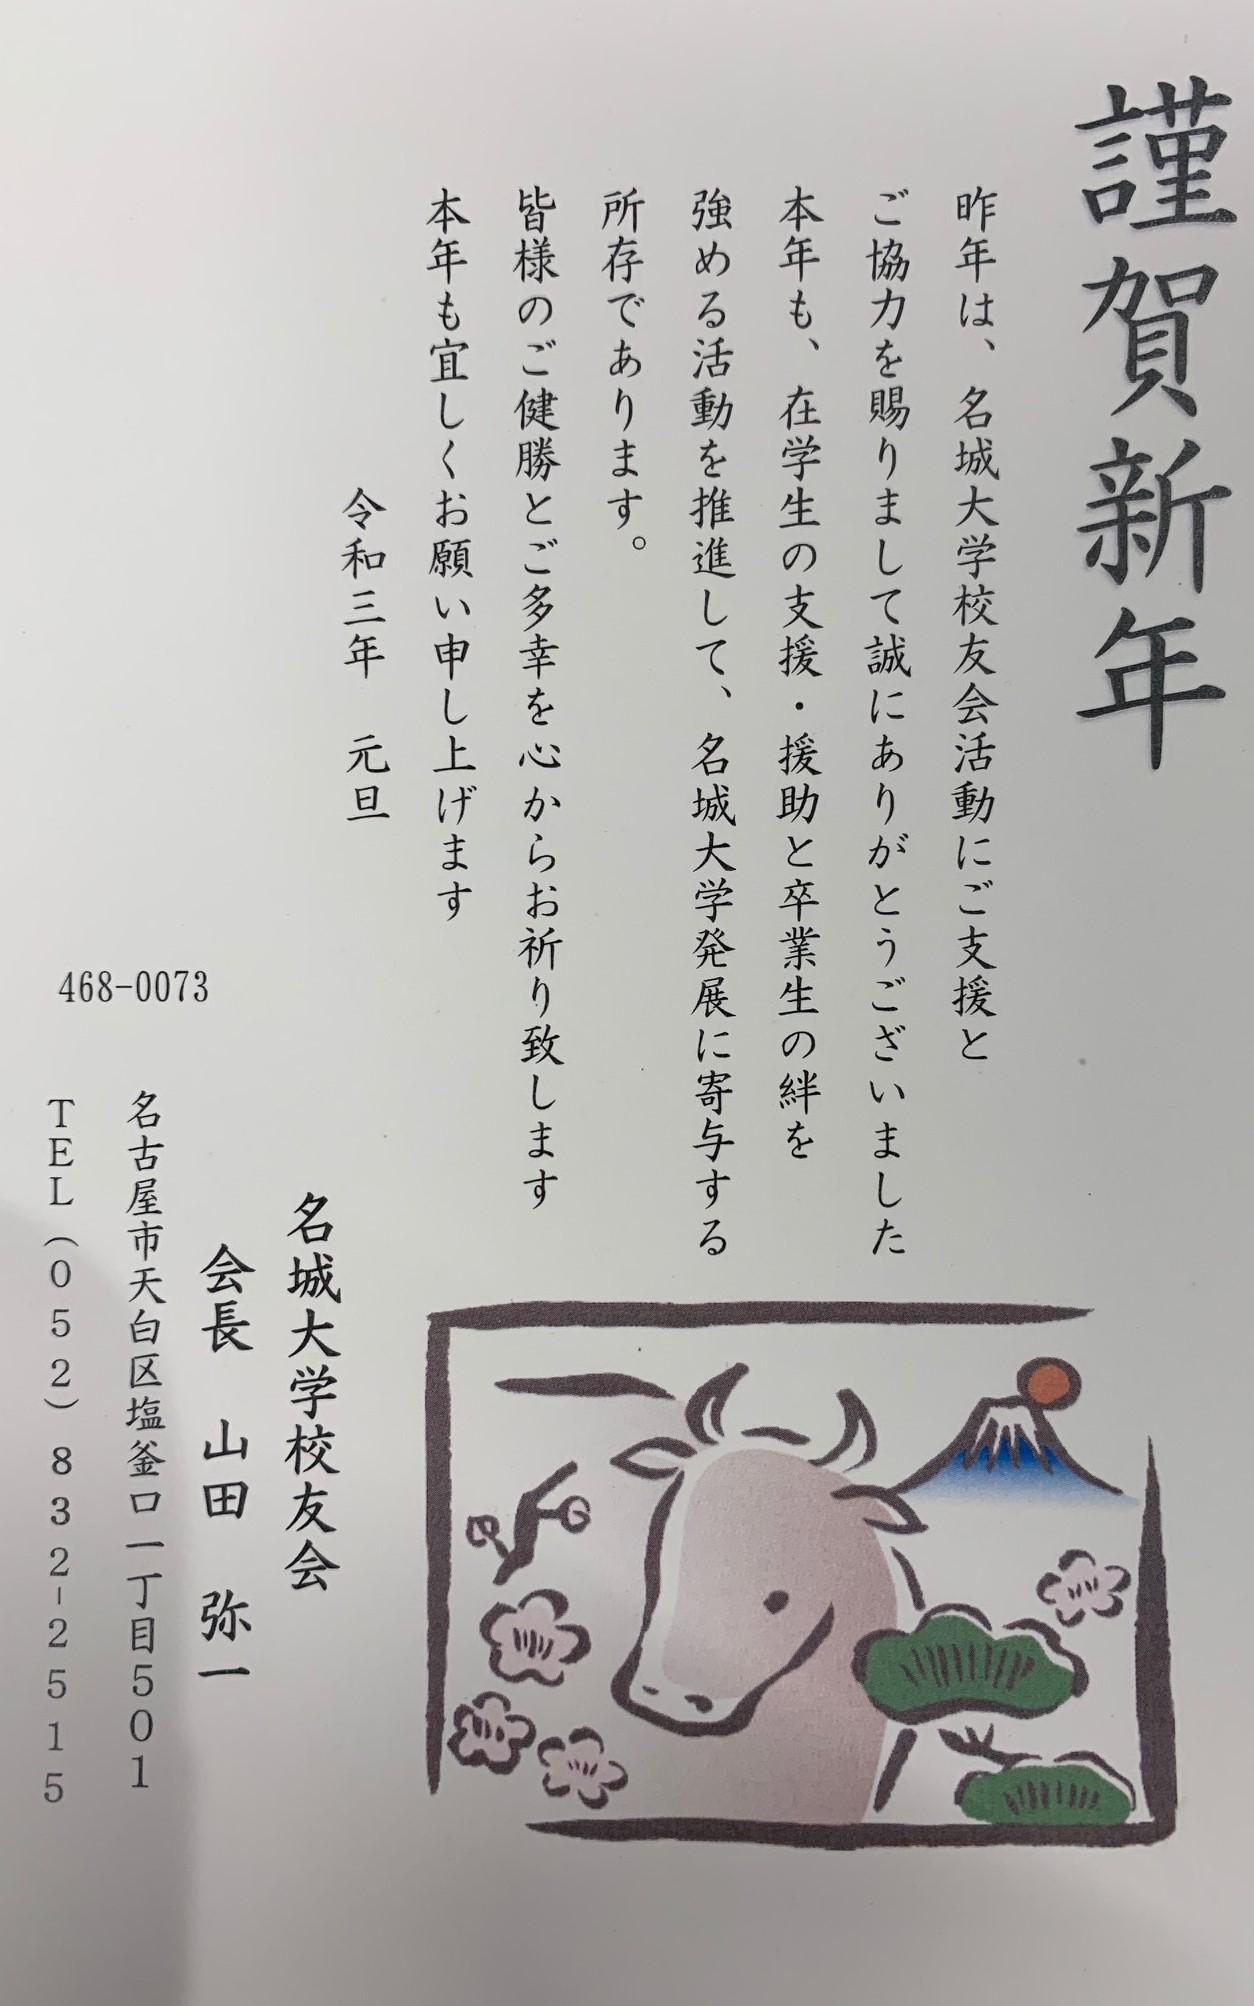 謹賀新年
昨年は、名城大学校友会活動にご支援と
ご協力を賜りまして誠にありがとうございました
本年も、在学生の支援・援助と卒業生の絆を
強める活動を推進して、名城大学発展に寄与する
所存であります。
皆様のご健勝とご多幸を心からお祈り致します
本年も宜しくお願い申し上げます
令和三年　元旦
名城大学校友会
会長　山田　弥一
468-0073
名古屋市天白区塩釜口一丁目501
TEL(052)832-2515